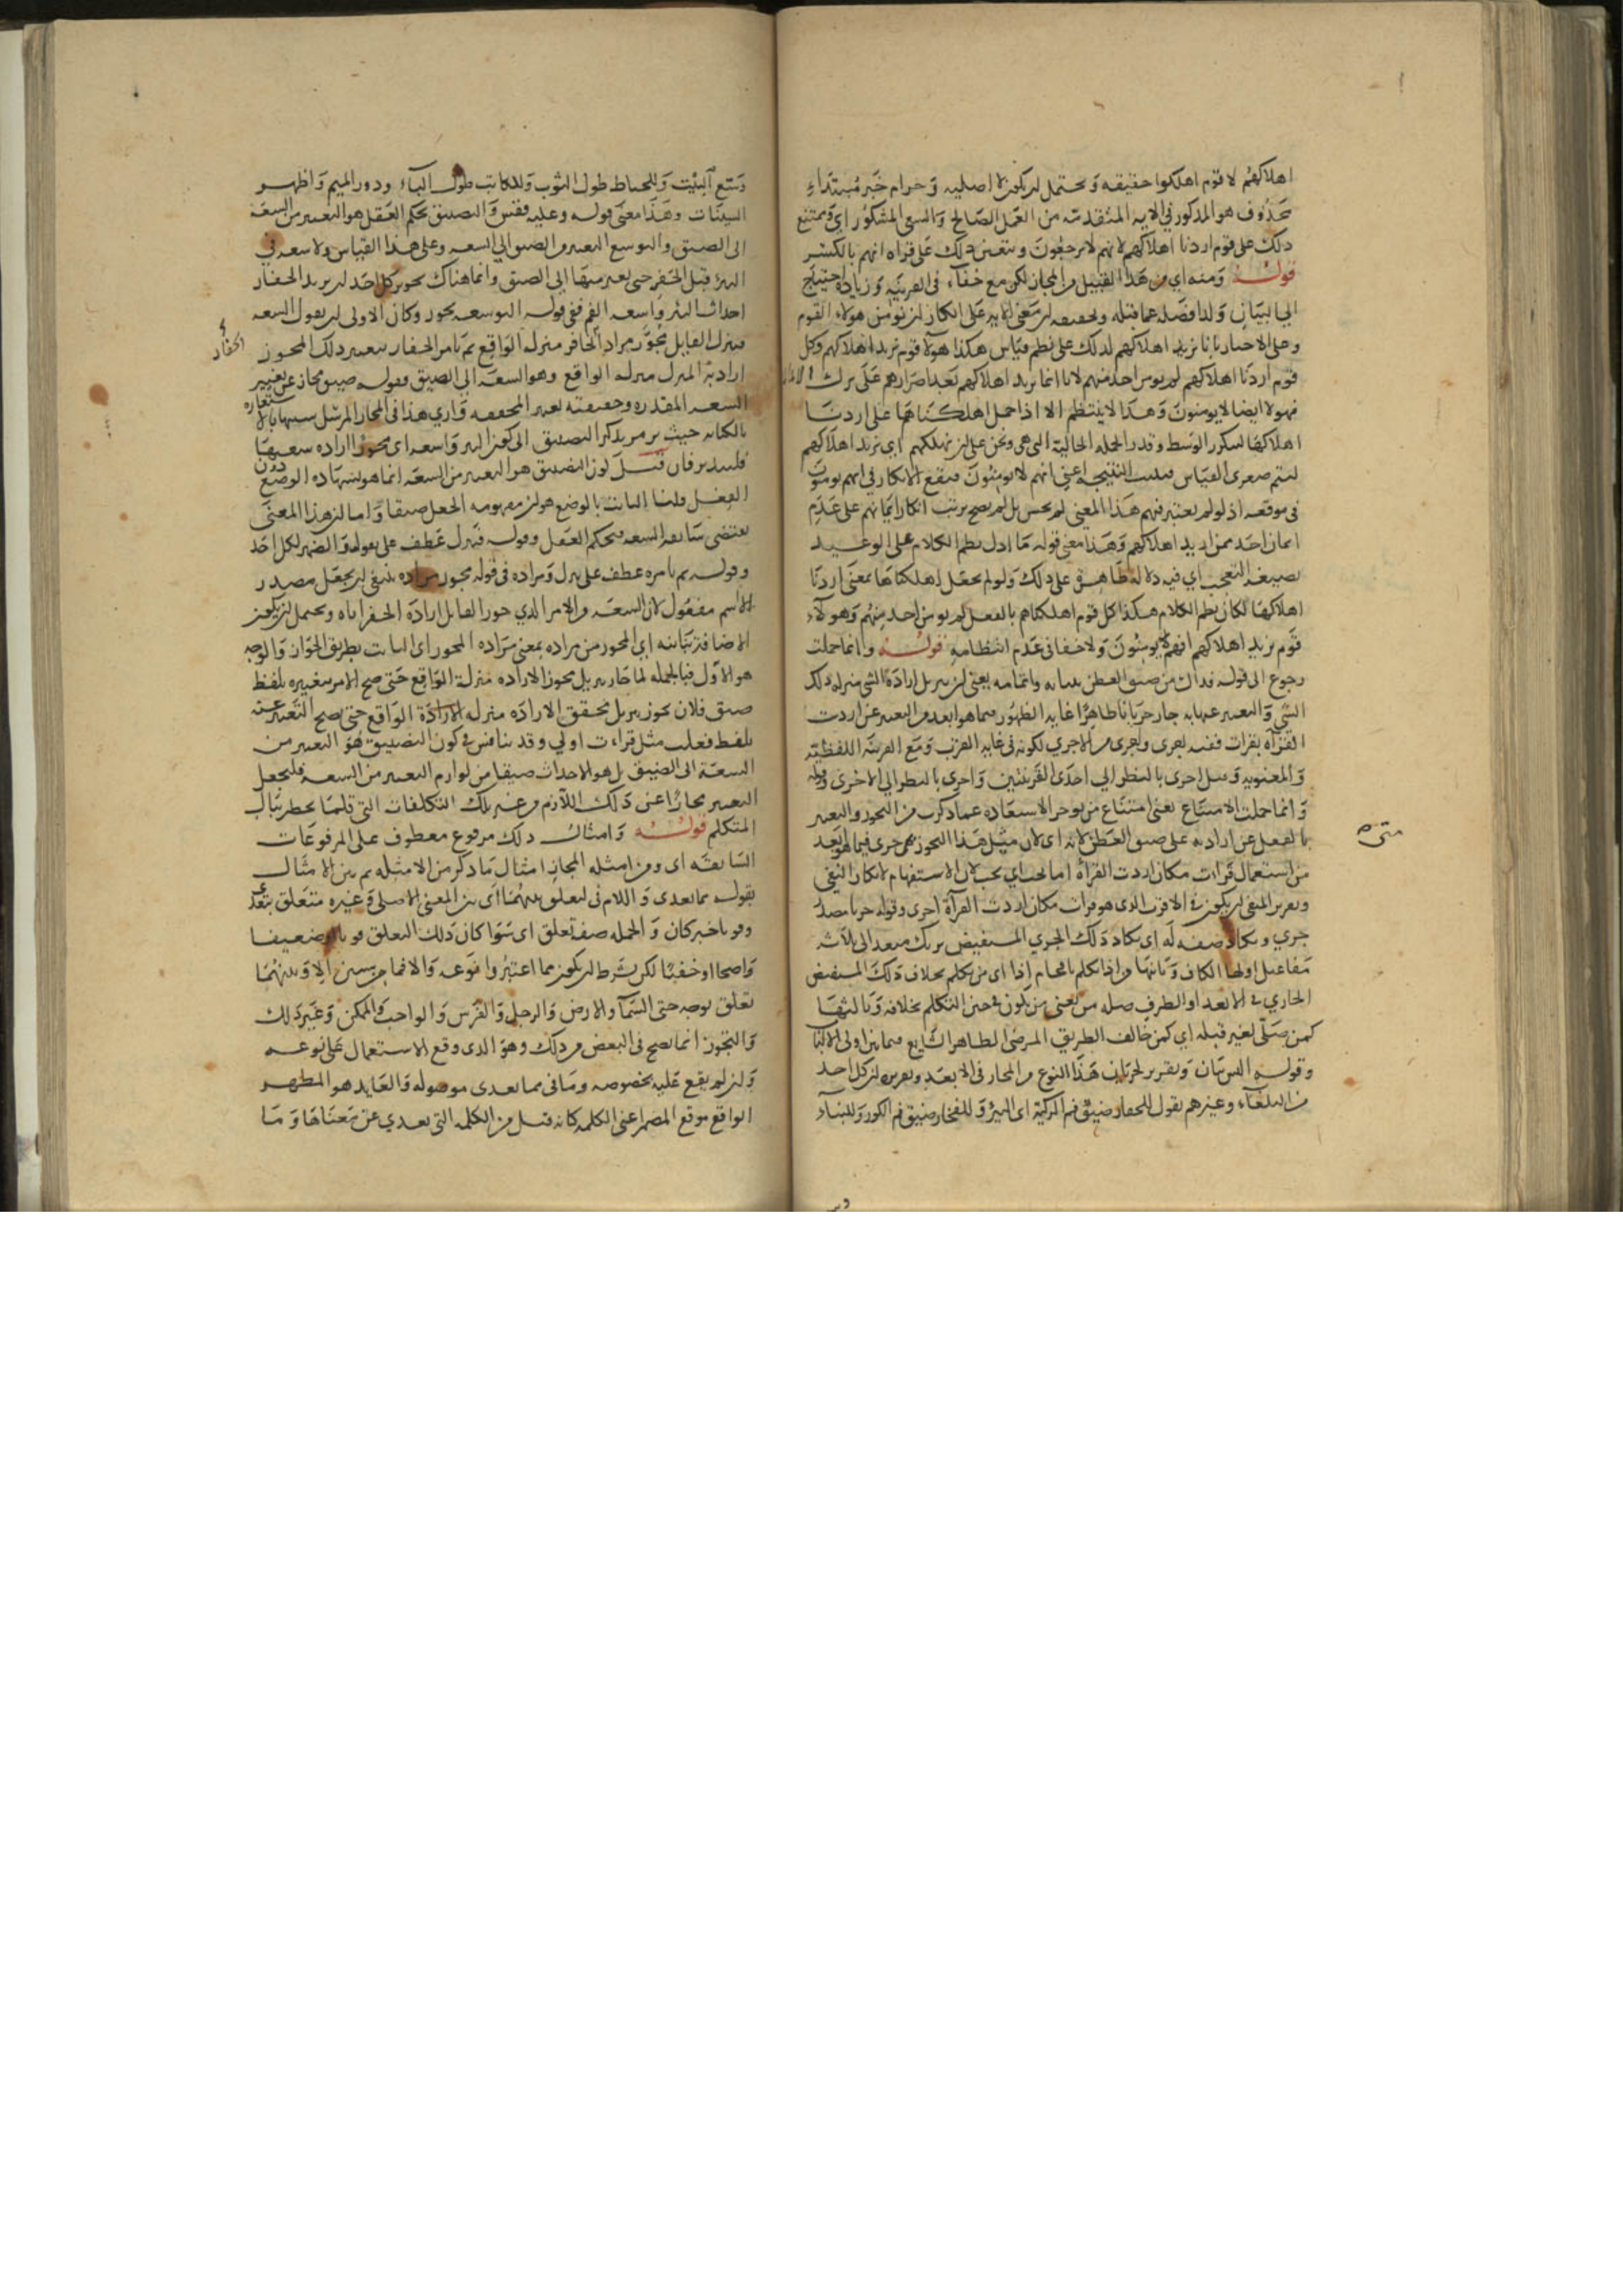 اهلاكهم لا قوم اهلكوا حقيقه ويحتمل ان يكون لا اصليه وحرام خبر مبتداء
محذوف هو المذكور في الايه المتقدمه من العمل الصالح والسعي المشكور اي ويمتنع
ذلك على قوم اردنا اهلاكهم لانهم لا يرجعون ويتعين ذلك على قراه انهم بالكسر
قوله ومنه اي من هذا القبيل من المجاز لكن مع خفاء في القرينه وزياده احتياج
الى البيان ولذا فصله عما قبله وتحقيقه ان معنى الايه على انكار ان يومن هولاء القوم
قوم اردنا اهلاكهم لم يومن احد منهم لانا انما نريد اهلاكهم بعد اصرارهم على ترك
فهولا ايضا لا يومنون وهذا لا ينتظم الا اذا حمل اهلكناها على اردنا
اهلاكها ليتكرر الوسط وقدر الجمله الحاليه التي هي ونحن على ان نهلكهم اي نريد اهلاكهم
لتتم صغرى القياس النتيجه اعني انهم لا يومنون فيقع الانكار في انهم يومنون
في موقعه اذ لو لم يعتبر فيهم هذا المعنى لم يحسن بل لم يصح ترتب انكار ايمانهم على عدم
ايمان احد ممن اريد اهلاكهم وهذا معنى قوله ما ادل نظم الكلام على الوعيد
بصيغه التعجب اي فيه دلاله ظاهره على ذلك ولو لم يجعل اهلكناها بمعنى اردنا
اهلاكها لكان نظم الكلام هكذا كل قوم اهلكناهم بالفعل لم يومن احد منهم وهولاء
قوم نريد اهلاكهم افهم يومنون ولا خفا في عدم انتظامه قوله وانما حملت
رجوع الى قوله يعني ان تنزيل ارادة الشي منزله ذلك
الشي والتعبير عنها به جار جريانا ظاهرا غايه الظهور فيما هو ابعد من التعبير عن اردت
القراه بقرات ففيه لكونه في غايه القرب ومع القرينه اللفظيه
والمعنويه وقيل اجرى بالنظر الى احدى القرينتين واحرى بالنظر الى الاخرى وقوله
وانما حملت الامتناع يعني امتناع عما ذكرت من التجوز والتعبير
بالفعل عن ارادته على ضيق العطن لانه اي لان مثل هذا التجوز جرى فيما هو ابعد
من استعمال قرات مكان اردت القراه اما يجب اي يجب لان الاستفهام لانكار النفي
وتقرير المنفي ان يكون في الاقرب الذي هو قرات مكان اردت القراه اجرى وقوله جريا مصدر
جري ويكاد صفه له اي يكاد ذلك الجري المستفيض يريك متعد الى ثلاثه
مفاعيل اولها الكاف وثانيها من اذا تكلم اي من تكلم بخلاف ذلك المستفيض
الجاري في الابعد او الظرف صله من يعني من يكون في حين التكلم بخلافه وثالثها
كمن صلى لغير قبله اي كمن خالف الطريق المرضي الظاهر الشايع فيما بين اولي الالباب
وقوله وتقرير لجريان هذا النوع من المجاز في الابعد وتقريره ان كل احد
من البلغاء وغيرهم يقول للحفار ضيق فم الركية اي البير وللفخار ضيق فم الكوز وللبناء
متى
وسع البيت وللخياط طول الثوب وللكاتب طول الباء ودور الميم واظهر
السينات وهذا معنى قوله وعليه فقس والتضييق بحكم العقل هو التغيير من السعه
الى الضيق والتوسيع التغيير من الضيق الى السعه وعلى هذا القياس ولا سعه في
البئر قبل الحفر حتى يغير منها الى الضيق وانما هناك تجويز كل احد ان يريد الحفار
احداث البئر واسعه الفم ففي قوله التوسعه تجوز وكان الاولى ان يقول السعه
فينزل القايل مجوز مراد الحافر منزله الواقع ثم يامر الحفار بتغيير ذلك المجوز
ارادته المنزل منزله الواقع وهو السعه الى الضيق فقوله ضيق مجاز عن تغيير
السعه المقدره وحقيقته تغيير المحققه واري هذا في المجاز المرسل شبيها بالاستعاره
بالكنايه حيث
الحفار
فليتدبر فان قيل كون التضييق هو التغيير من السعه انما هو بشهاده الوضع دون
العقل قلنا الثابت بالوضع هو ان مفهومه الجعل ضيقا واما ان هذا المعنى
يقتضي سابقه السعه فبحكم العقل وقوله فينزل عطف على يقوله والضمير لكل احد
وقوله ثم يامره عطف على ينزل ومراده في قوله مجوز مراده ينبغي ان يجعل مصدر
لا اسم مفعول لان السعه من الامر الذي جوز القايل ارادة الحفر اياه ويحتمل ان يكون
الاضافه بيانيه اي المجوز من مراده بمعنى مراده المجوز اي الثابت بطريق الجواز والوجه
هو الاول فبالجمله لما جاز تنزيل مجوز الاراده منزلة الواقع حتى صح الامر بتغييره بلفظ
ضيق فلان يجوز تنزيل محقق الاراده منزله الواقع حتى يصح التعبير عنه
بلفظ فعلت مثل قراءت اولى وقد يناقش في كون التضييق هو التغيير من
السعه الى الضيق بل هو الاحداث ضيقا من لوازم التغيير من السعه فليجعل
التغيير مجازا عن ذلك اللازم من غير تلك التكلفات التي قلما يخطر ببال
المتكلم قوله وامثال ذلك مرفوع معطوف على المرفوعات
السابقه اي ومن امثله المجاز امثال ما ذكر من الامثله ثم بين الامثال
بقوله مما تعدى واللام في لتعلق بينهما اي بين المعنى الاصلي وغيره متعلق بتعدى
وقويا خبر كان والجمله صفه تعلق اي سواء كان ذلك التعلق قويا او ضعيفا
واضحا او خفيا لكن شرط ان يكون مما اعتبروا نوعه والا فما من شيين الا وبينهما
تعلق بوجه حتى السماء والارض والرجل والفرس والواجب والممكن وغير ذلك
والتجوز انما يصح في البعض من ذلك وهو الذي وقع الاستعمال على نوعه
وان لم يقع عليه بخصوصه وما في مما تعدى موصوله والعايد هو المظهر
الواقع موقع المضمر اعني الكلمه كانه قيل من الكلمه التي تعدي عن معناها وما